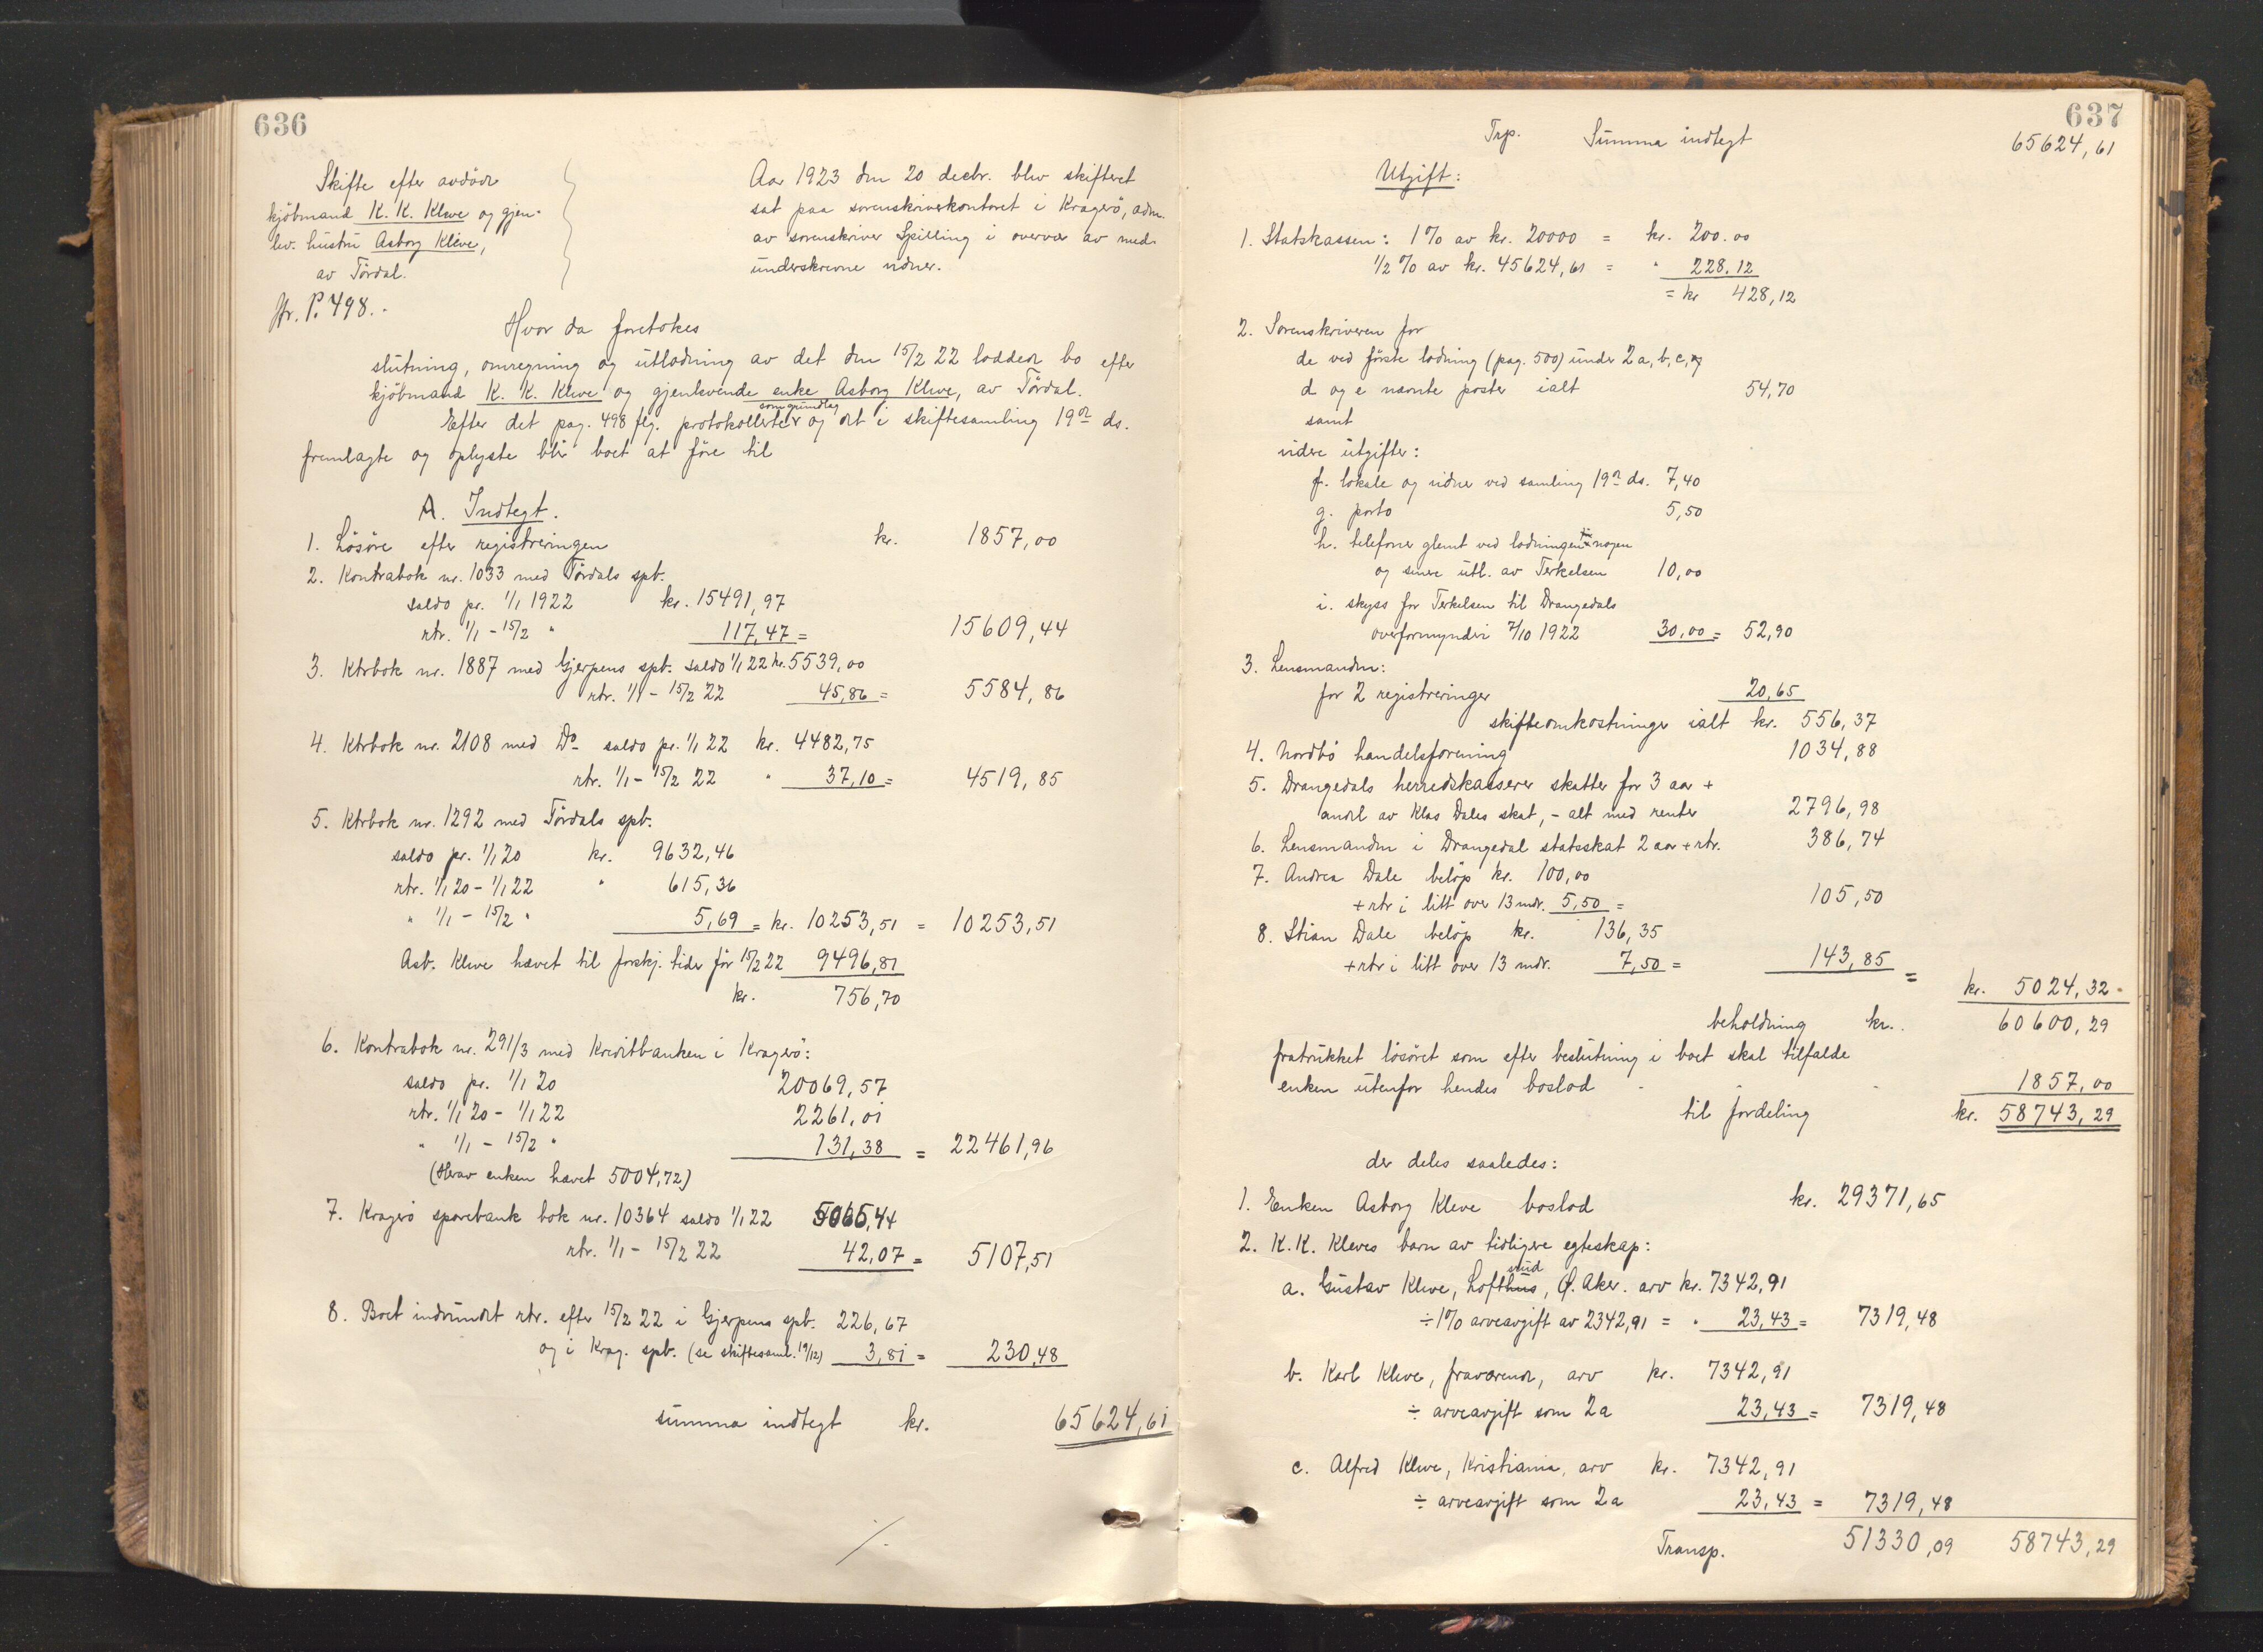 636
Skifte efter avdöde
kjöbmand K. K. Kleve og gjen-
lev. hustru Asborg Kleve,
av Tördal.
Jfr. P. 498.
Aar 1923 den 20 decbr. blev skifteret
sat paa sorenskriverkontoret i Kragerö, adm.
av sorenskriver Spilling i overvær av med-
underskrevne vidner.
Hvor da foretokes
slutning, omregning og utlodning av det den 15/2 22 loddede bo efter
kjöbmand K. K. Kleve og gjenlevende enke Asborg Kleve, av Tördal.
Efter det pag. 498 flg. protokollerte som grundlag og det i skiftesamling 19de ds.
fremlagte og oplyste blir boet at före til
A. Indtegt.
1. Lösöre efter registreringen kr. 1857,00
2. Kontrabok nr. 1033 med Tördals spb.
saldo pr. 1/1 1922 kr. 15491,97
rtr. 1/1 - 15/2 " 117,47 = 15609,44
3. Ktrbok nr. 1887 med Gjerpens spb. saldo 1/1 22 kr. 5539,00
rtr. 1/1 - 15/2 22 45,86 = 5584,86
4. Ktrbok nr. 2108 med Do saldo pr. 1/1 22 kr. 4482,75
rtr. 1/1 - 15/2 22 " 37,10 = 4519,85
5. Ktrbok nr. 1292 med Tördals spb.
saldo pr. 1/1 20 kr. 9632,46
rtr. 1/1 20 - 1/1 22 " 615,36
" 1/1 - 15/2 " 5,69 = kr. 10253,51 = 10253,51
Asb. Kleve hævet til forskj. tider för 15/2 22 9496,81
kr. 756,70
6. Kontrabok nr. 291/3 med Kreditbanken i Kragerö:
saldo pr. 1/1 20 20069,57
rtr. 1/1 20 - 1/1 22 2261,01
" 1/1 - 15/2 " 131,38 = 22461,96
(Herav enken hævet 5004,72)
7. Kragerö sparebank bok nr. 10364 saldo 1/1 22 5065,44
rtr. 1/1 - 15/2 22 42,07 = 5107,51
8. Boet indvundet rtr. efter 15/2 22 i Gjerpens spb. 226,67
og i Krag. spb. (se skiftesaml. 19/12) 3,81 = 230,48
summa indtegt kr. 65624,61
637
Trp. Summa indtegt 65624,61
Utgift:
1. Statskassen: 1% av kr. 20000 = kr. 200.00
1/2 % av kr. 45624,61 = " 228.12
= kr 428,12
2. Sorenskriveren for
de ved förste lodning (pag. 500) under 2 a, b, c, og
d og e nævnte poster ialt 54,70
samt
videre utgifter:
f. lokale og vidner ved samling 19de ds. 7,40
g. porto 5,50
h. telefoner glemt ved lodningen + nogen
og senere utl. av Terkelsen 10,00
i. skyss for Terkelsen til Drangedals
overformynderi 7/10 1922 30,00 = 52,90
3. Lensmanden:
for 2 registreringer 20,65
skifteomkostninger ialt kr. 556,37
4. Nordbö handelsforening 1034,88
5. Drangedals herredskasserer skatter for 3 aar +
andel av Klas Dales skat, - alt med renter 2796,98
6. Lensmanden i Drangedal statsskat 2 aar + rtr. 386,74
7. Andrea Dale belöp kr. 100,00
+ rtr i litt over 13 mdr. 5,50 = 105,50
8. Stian Dale belöp kr. 136,35
+ rtr i litt over 13 mdr. 7,50 = 143,85 = kr. 5024,32
beholdning kr. 60600,29
fratrukket lösöret som efter beslutning i boet skal tilfalde
enken utenfor hendes boslod - " - 1857,00
til fordeling kr. 58743,29
der deles saaledes:
1. Enken Asborg Kleve boslod kr. 29371,65
2. K. K. Kleves barn av tidligere egteskap:
a. Gustav Kleve, Lofthus, Ö. Aker. arv kr. 7342,91
÷ 1% arveavgift av 2342,91 = " 23,43 = 7319,48
b. Karl Kleve, fraværende, arv kr. 7342,91
÷ arveavgift som 2a 23,43 = 7319,48
c. Alfred Kleve, Kristiania, arv kr. 7342,91
÷ arveavgift som 2a 23,43 = 7319,48
Transp. 51330,09 58743,29